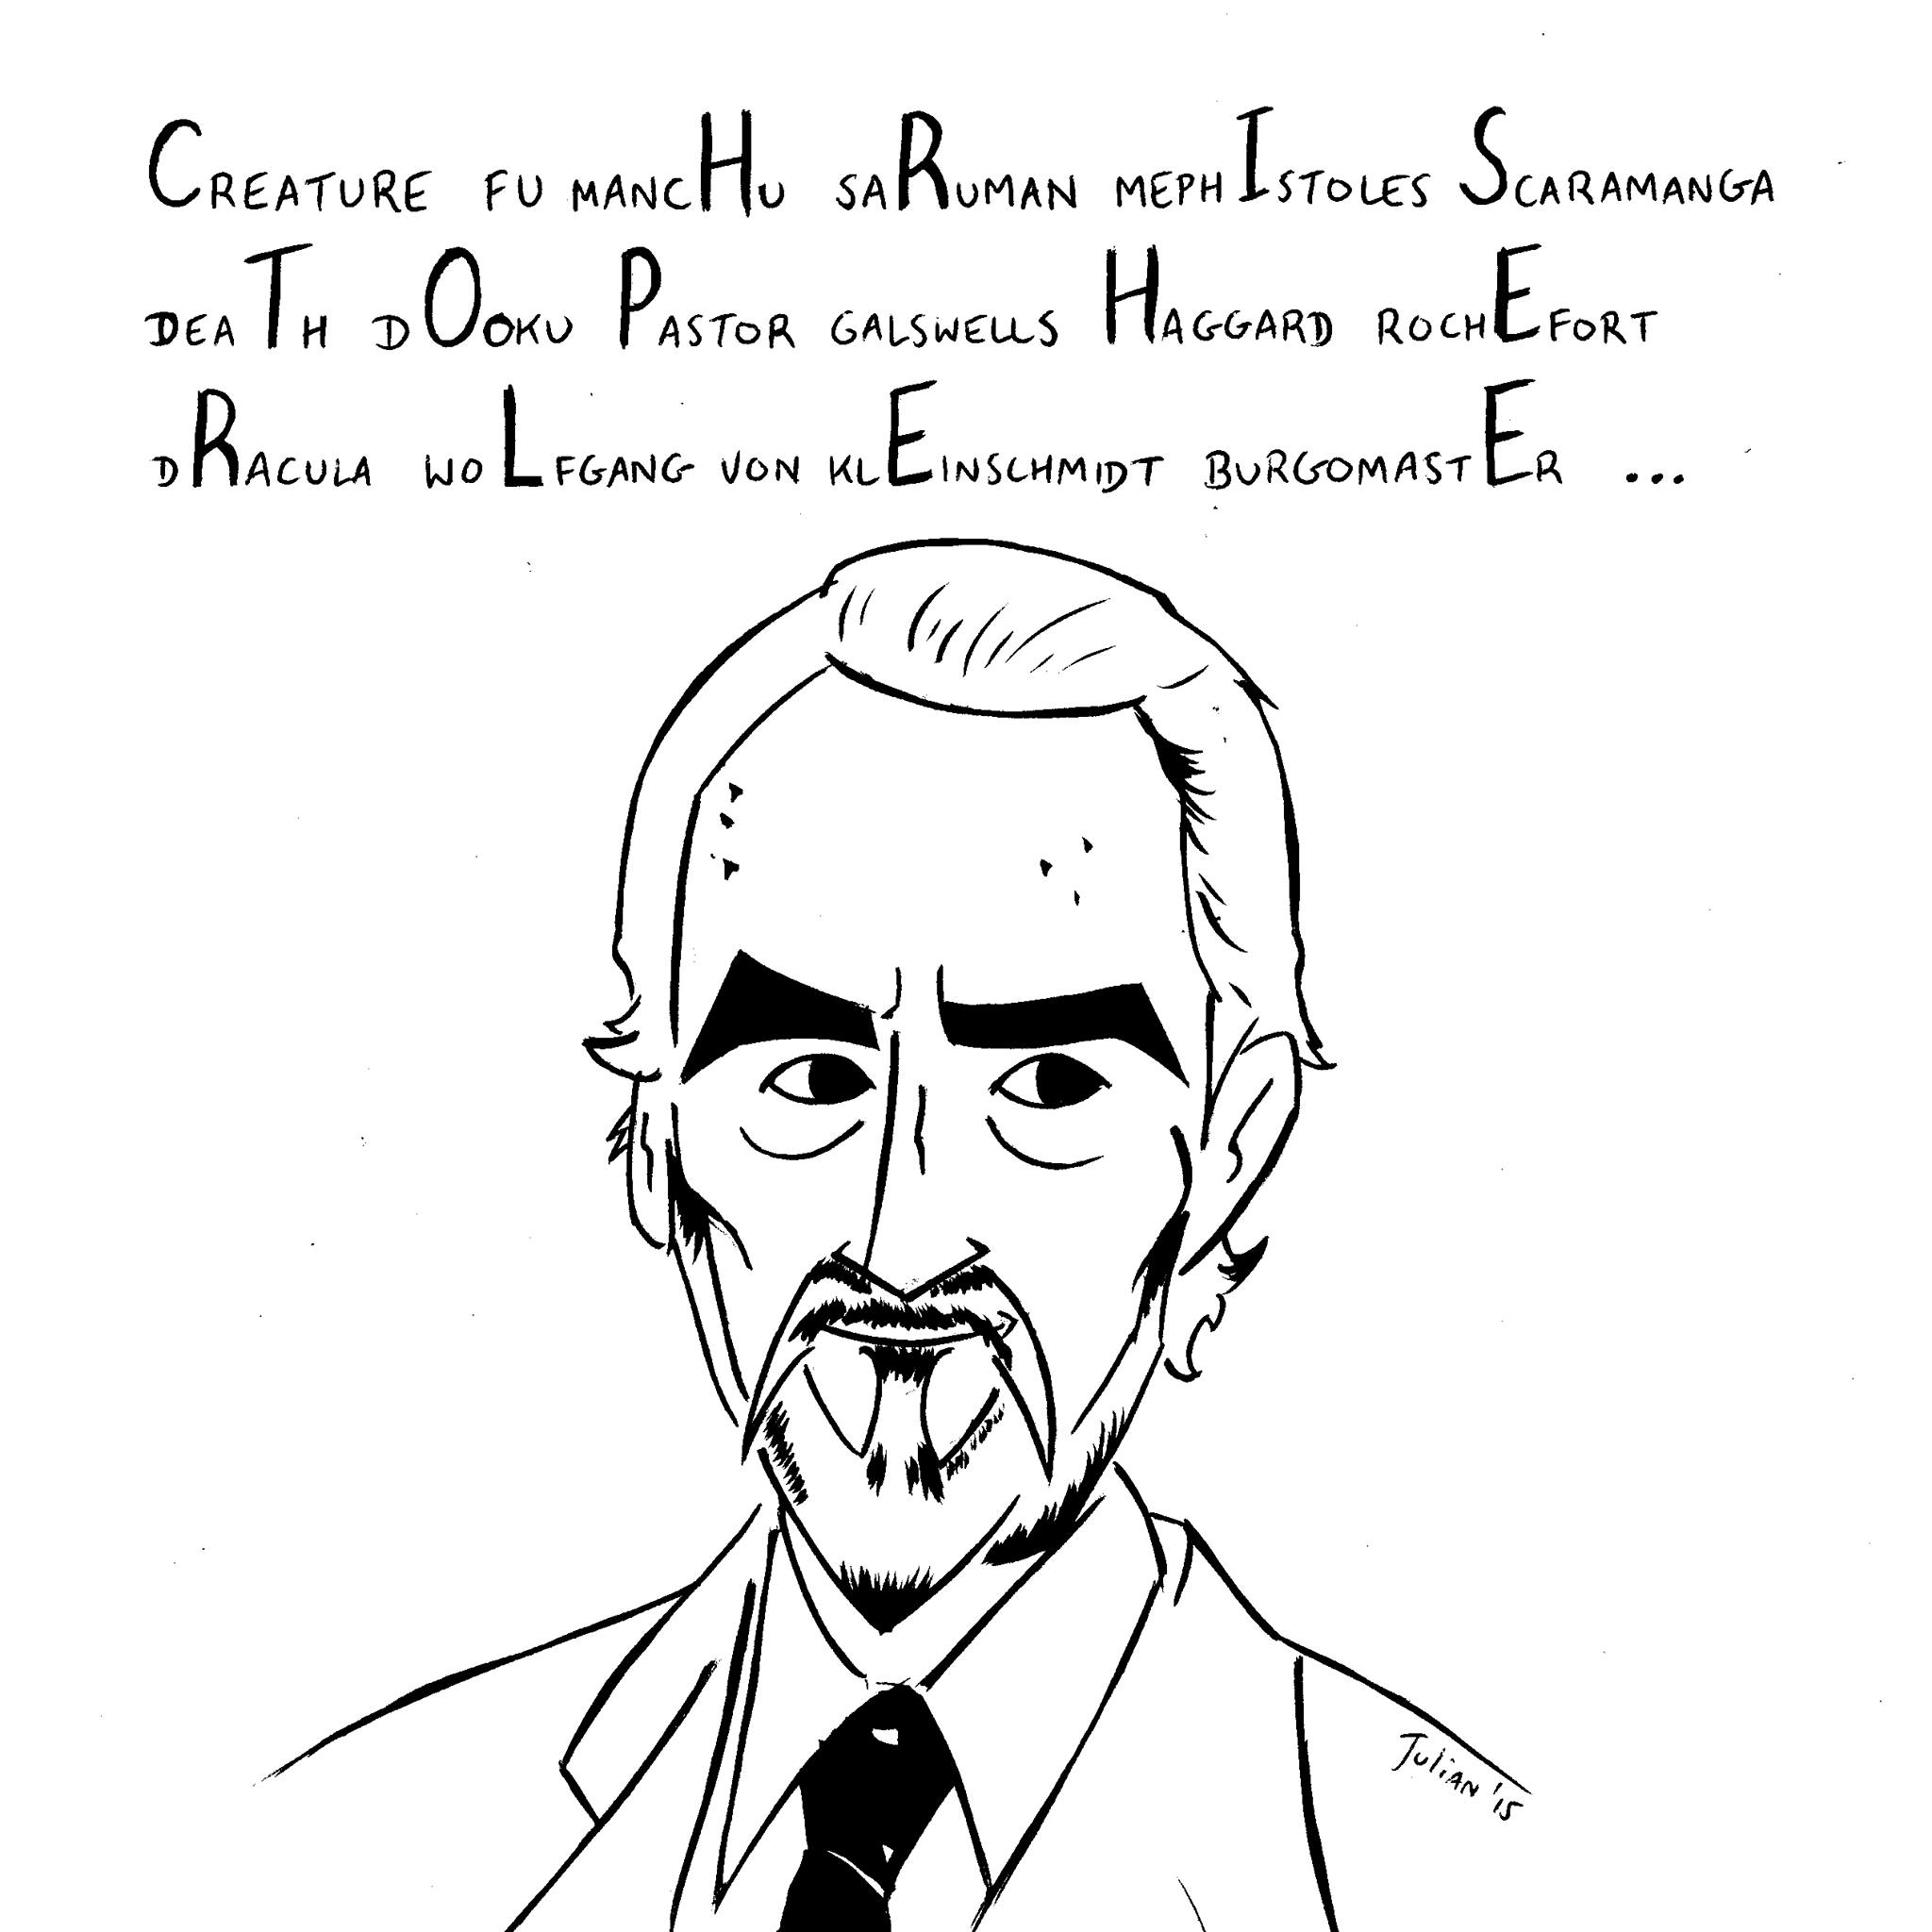 CREATURE FU MANCHU SARUMAN MEPHISTOLES SCARAMANGA
DEATH DOOKU PASTOR GALSWELLS HAGGARD ROCHEFORT
DRACULA WOLFGANG VON KLEINSCHMIDT BURGOMASTER ...
JULIAN '15